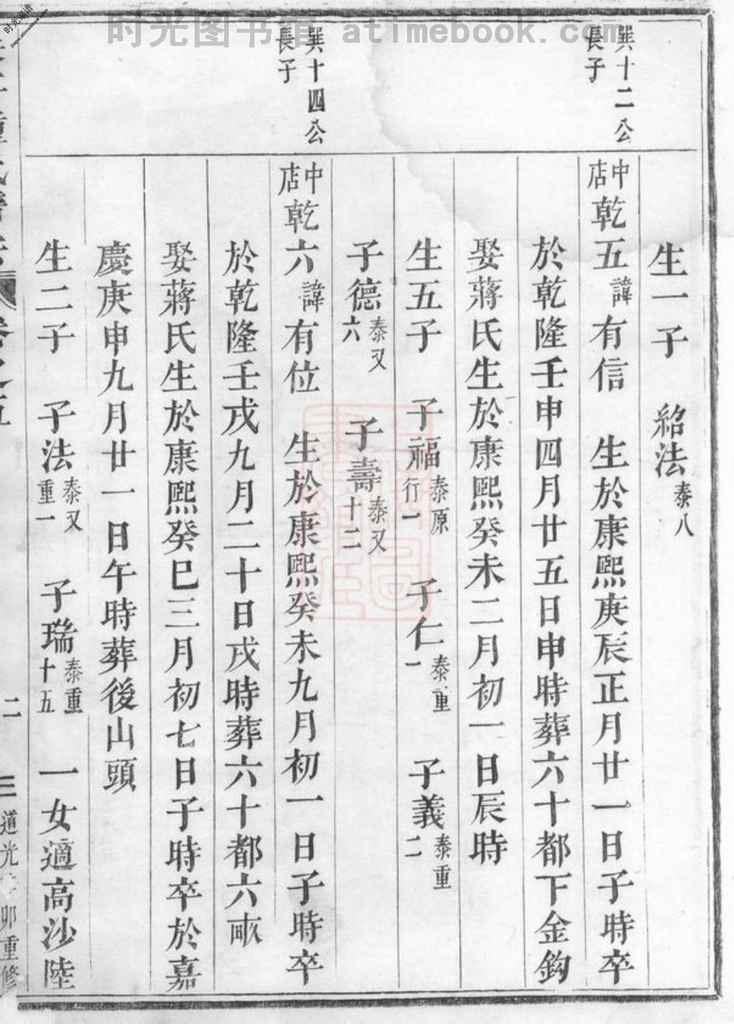 时光图书馆 atimebook.com
巽十二公
長子
巽十四公
長子
生一子 紹法泰八
中店乾五諱有信 生於康熙庚辰正月廿一日子時卒
於乾隆壬申四月廿五日申時葬六十都下金鈎
娶蔣氏生於康熙癸未二月初一日辰時
生五子 子福泰原行一 子仁泰重一 子義泰重二
子德泰又六 子壽泰又十二
中店乾六諱有位 生於康熙癸未九月初一日子時卒
於乾隆壬戌九月二十日戌時葬六十都六畝
娶蔣氏生於康熙癸巳三月初七日子時卒於嘉
慶庚申九月廿一日午時葬後山頭
生二子 子法泰又重一 子瑞泰重十五 一女適高沙陸
卷之五
二
三
道光 卯重修